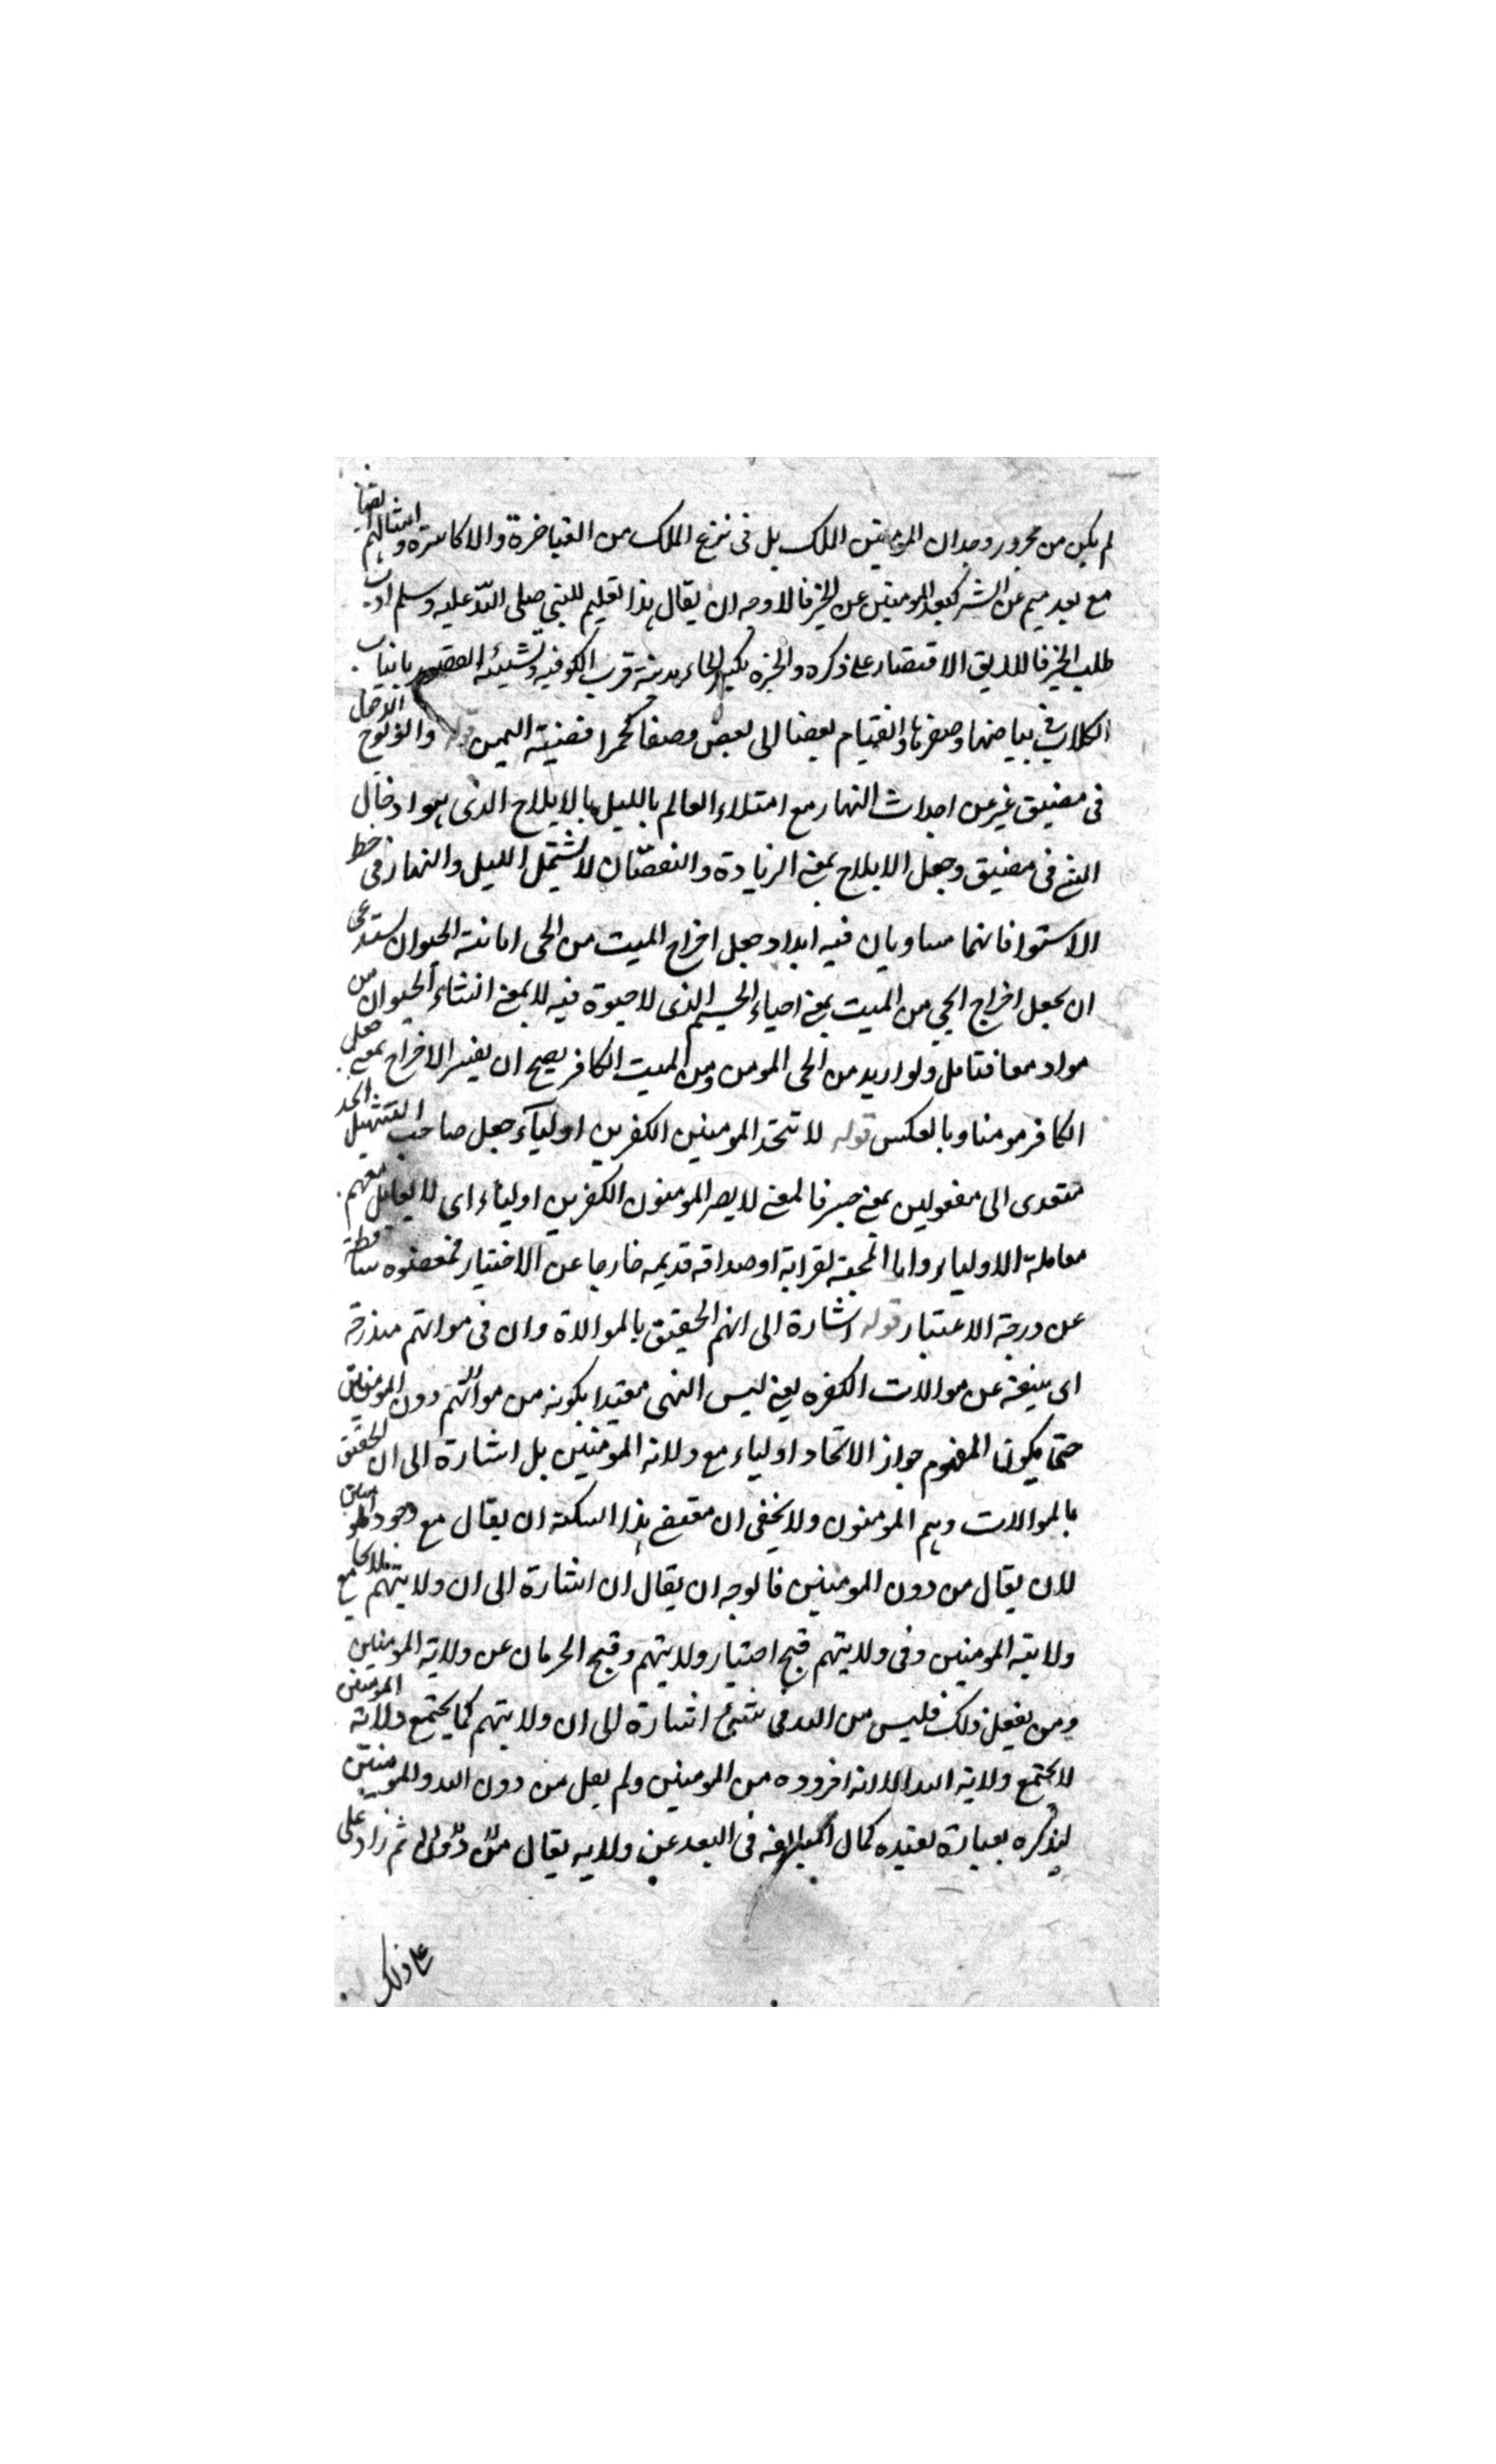 لم يكن من مجرور وجدان المومنين الملك بل فى نزع الملك من القياصرة والاكاسرة وامثالهم ايضا
مع بعد ميم عن الشر كبعد المومنين عن الخير فالاوجه ان يقال هذا تعليم للنبي صلى الله عليه وسلم ادب
طلب الخير فاللايق الاقتصار على ذكره والحيزه بكسر الحاء مدينة قرب الكوفيه وتشبيه القصور بانياب
الكلاب فى بياضها وصغرها وانضيام بعضنا الى بعض وصفا كحمرا قضيته اليمن قوله والولوج الادخال
فى مضيق غير عن احداث النهار مع امتلاء العالم بالليل بالايلاج الذى هو ادخال
الشئ فى مضيق وجعل الايلاج بمعنى الزيادة والنقصان لا يشتمل الليل والنهار فى خط
الاستوا فانهما مساويان فيه ابدا وجعل اخراج الميت من الحى اماتة الحيوان يستدعى
ان يجعل اخراج الحي من الميت بمعنى احياء الجسم الذى لا حيوة فيه لا بمعنى انشاء الحيوان من
مواد معا فتامل ولو اريد من الحى المومن ومن الميت الكافر يصح ان يفسر الاخراج بمعنى جعل
الكافر مومنا وبالعكس قوله لا تتخذ المومنين الكفرين اولياء جعل صاحب التسهيل اتخذ
متعدى الى مفعولين بمعنى صير فالمعنى لا يصر المومنون الكفرين اولياء اى لا يعامل معهم
معاملة الاولياء واما المحبة لقرابة او صداقه قديمه خارجا عن الاختيار فمعفوه ساقطة
عن درجة الاعتبار قوله اشارة الى انهم الحقيق بالموالاة وان فى موالاتهم مندرحة
اى سعة عن موالات الكفره يعنى ليس النهى مقيدا بكونه من موالاتهم دون المومنين
حتى يكون المفهوم جواز الاتخاد اولياء مع ولاية المومنين بل اشارة الى ان الحقيق
بالموالات وهم المومنون ولا يخفى ان مقتضى هذا النكتة ان يقال مع وجود المومنين
لان يقال من دون المومنين فالوجه ان يقال ان اشارة الى ان ولايتهم لا يجامع
ولاية المومنين وفى ولايتهم قبح اختيار ولايتهم وقبح الحرمان عن ولاية المومنين
ومن يفعل ذلك فليس من الله فى شئ اشارة الى ان ولايتهم كما يجتمع ولاية المومنين
لا يجتمع ولاية الله الا انه افروده من المومنين ولم يقل من دون الله والمومنين
ليذكره بعبارة تفيده كمال المبالغه فى البعد عن ولايه يقال من دون ثم زاد على
على ذلك